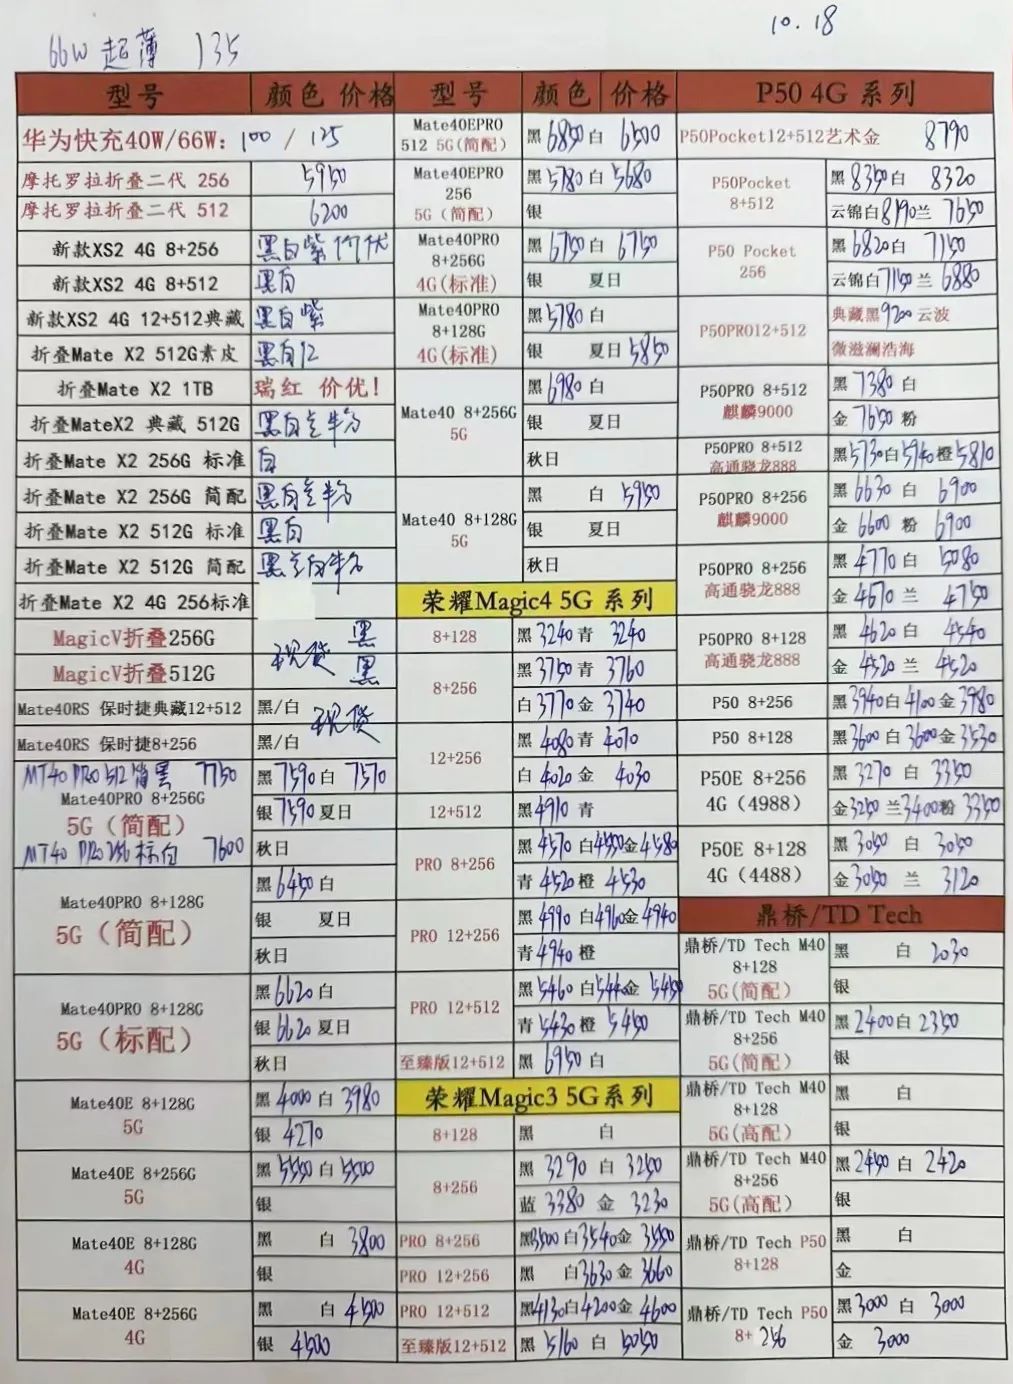 10.18
66W 超薄 135
型号 颜色 价格
华为快充40W/66W: 100 / 125
摩托罗拉折叠二代 256 5950
摩托罗拉折叠二代 512 6200
新款XS2 4G 8+256 黑白紫 价优
新款XS2 4G 8+512 黑白
新款XS2 4G 12+512典藏 黑白紫
折叠Mate X2 512G素皮 黑白红
折叠Mate X2 1TB 瑞红 价优!
折叠MateX2 典藏 512G 黑白
折叠Mate X2 256G 标准 白
折叠Mate X2 256G 简配 黑白
折叠Mate X2 512G 标准 黑白
折叠Mate X2 512G 简配 黑 白
折叠Mate X2 4G 256标准
MagicV折叠256G 现货 黑
MagicV折叠512G 黑
Mate40RS 保时捷典藏12+512 黑/白 现货
Mate40RS 保时捷8+256 黑/白
MT40 PRO 512 黑 7750
Mate40PRO 8+256G
5G（简配）
MT40 PRO 256 标白 7600
黑 7590 白 7570
银 7590 夏日
秋日
Mate40PRO 8+128G
5G（简配）
黑 6450 白
银 夏日
秋日
Mate40PRO 8+128G
5G（标配）
黑 6620 白
银 6620 夏日
秋日
Mate40E 8+128G
5G
黑 4000 白 3980
银 4270
Mate40E 8+256G
5G
黑 5550 白 5500
银
Mate40E 8+128G
4G
黑 白 3800
银
Mate40E 8+256G
4G
黑 白 4500
银 4500
型号 颜色 价格
Mate40EPRO
512 5G(简配)
黑 6850 白 6500
Mate40EPRO
256
5G（简配）
黑 5780 白 5680
银
Mate40PRO
8+256G
4G(标准)
黑 6750 白 6750
银 夏日
Mate40PRO
8+128G
4G(标准)
黑 5780 白
银 夏日 5850
Mate40 8+256G
5G
黑 6980 白
银 夏日
秋日
Mate40 8+128G
5G
黑 白 5950
银 夏日
秋日
荣耀Magic4 5G 系列
8+128 黑 3240 青 3240
8+256
黑 3750 青 3760
白 3770 金 3740
12+256
黑 4080 青 4070
白 4020 金 4030
12+512 黑 4910 青
PRO 8+256
黑 4570 白 4550 金 4580
青 4520 橙 4530
PRO 12+256
黑 4990 白 4960 金 4940
青 4940 橙
PRO 12+512
黑 5460 白 5440 金 5450
青 5430 橙 5450
至臻版12+512 黑 6950 白
荣耀Magic3 5G系列
8+128 黑 白
8+256
黑 3290 白 3250
蓝 3380 金 3230
PRO 8+256 黑 3500 白 3540 金 3550
PRO 12+256 黑 白 3630 金 3660
PRO 12+512 黑 4130 白 4200 金 4600
至臻版12+512 黑 5160 白 5050
P50 4G 系列
P50Pocket12+512艺术金 8790
P50Pocket
8+512
黑 8350 白 8320
云锦白 8190 兰 7650
P50 Pocket
256
黑 6820 白 7150
云锦白 7150 兰 6880
P50PRO12+512
典藏黑 9200 云波
微滋澜浩海
P50PRO 8+512
麒麟9000
黑 7380 白
金 7650 粉
P50PRO 8+512
高通骁龙888
黑 5730 白 5940 橙 5810
P50PRO 8+256
麒麟9000
黑 6630 白 6900
金 6600 粉 6900
P50PRO 8+256
高通骁龙888
黑 4770 白 5080
金 4670 兰 4750
P50PRO 8+128
高通骁龙888
黑 4620 白 4540
金 4520 兰 4520
P50 8+256 黑 3940 白 4100 金 3980
P50 8+128 黑 3600 白 3600 金 3530
P50E 8+256
4G（4988）
黑 3270 白 3350
金 3250 兰 3400 粉 3350
P50E 8+128
4G（4488）
黑 3050 白 3050
金 3050 兰 3120
鼎桥/TD Tech
鼎桥/TD Tech M40
8+128
5G(简配）
黑 白 2030
银
鼎桥/TD Tech M40
8+256
5G(简配）
黑 2400 白 2350
银
鼎桥/TD Tech M40
8+128
5G(高配）
黑 白
银
鼎桥/TD Tech M40
8+256
5G(高配）
黑 2450 白 2420
银
鼎桥/TD Tech P50
8+128
黑 白
金
鼎桥/TD Tech P50
8+ 256
黑 3000 白 3000
金 3000